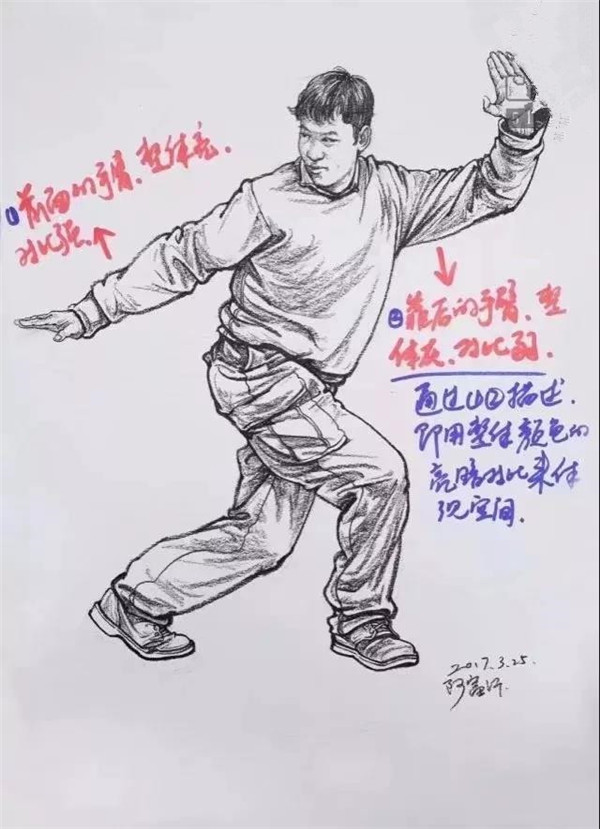 ① 前面的手臂,整体亮,
对比强.
② 靠后的手臂,整
体灰,对比弱.
通过①②描述,
即用整体颜色的
亮暗对比来体
现空间.
2017.3.25.